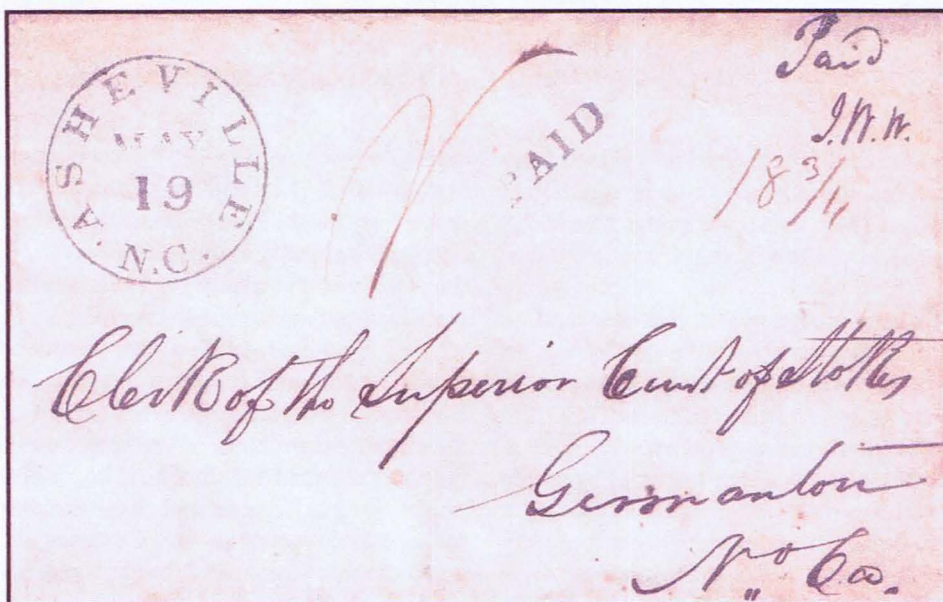 ASHEVILLE
MAY
19
N.C.
PAID
Paid
J.W.W.
18 3/4
Clerk of the Superior Court of Stokes
Germanton
No Ca.